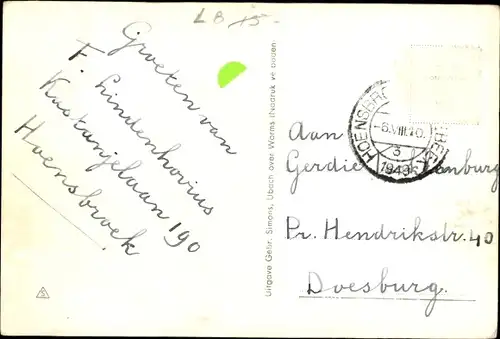 LB 15-
Groeten van
F. Lindenhovius
Kastanjelaan 190
Hoensbroek
Uitgave Gebr. Simons, Ubach over Worms (Nadruk verboden
HOENSBROEK
-6.VIII.10.
3
1949
Aan
Gerdie
Pr. Hendrikstr. 40
Doesburg.